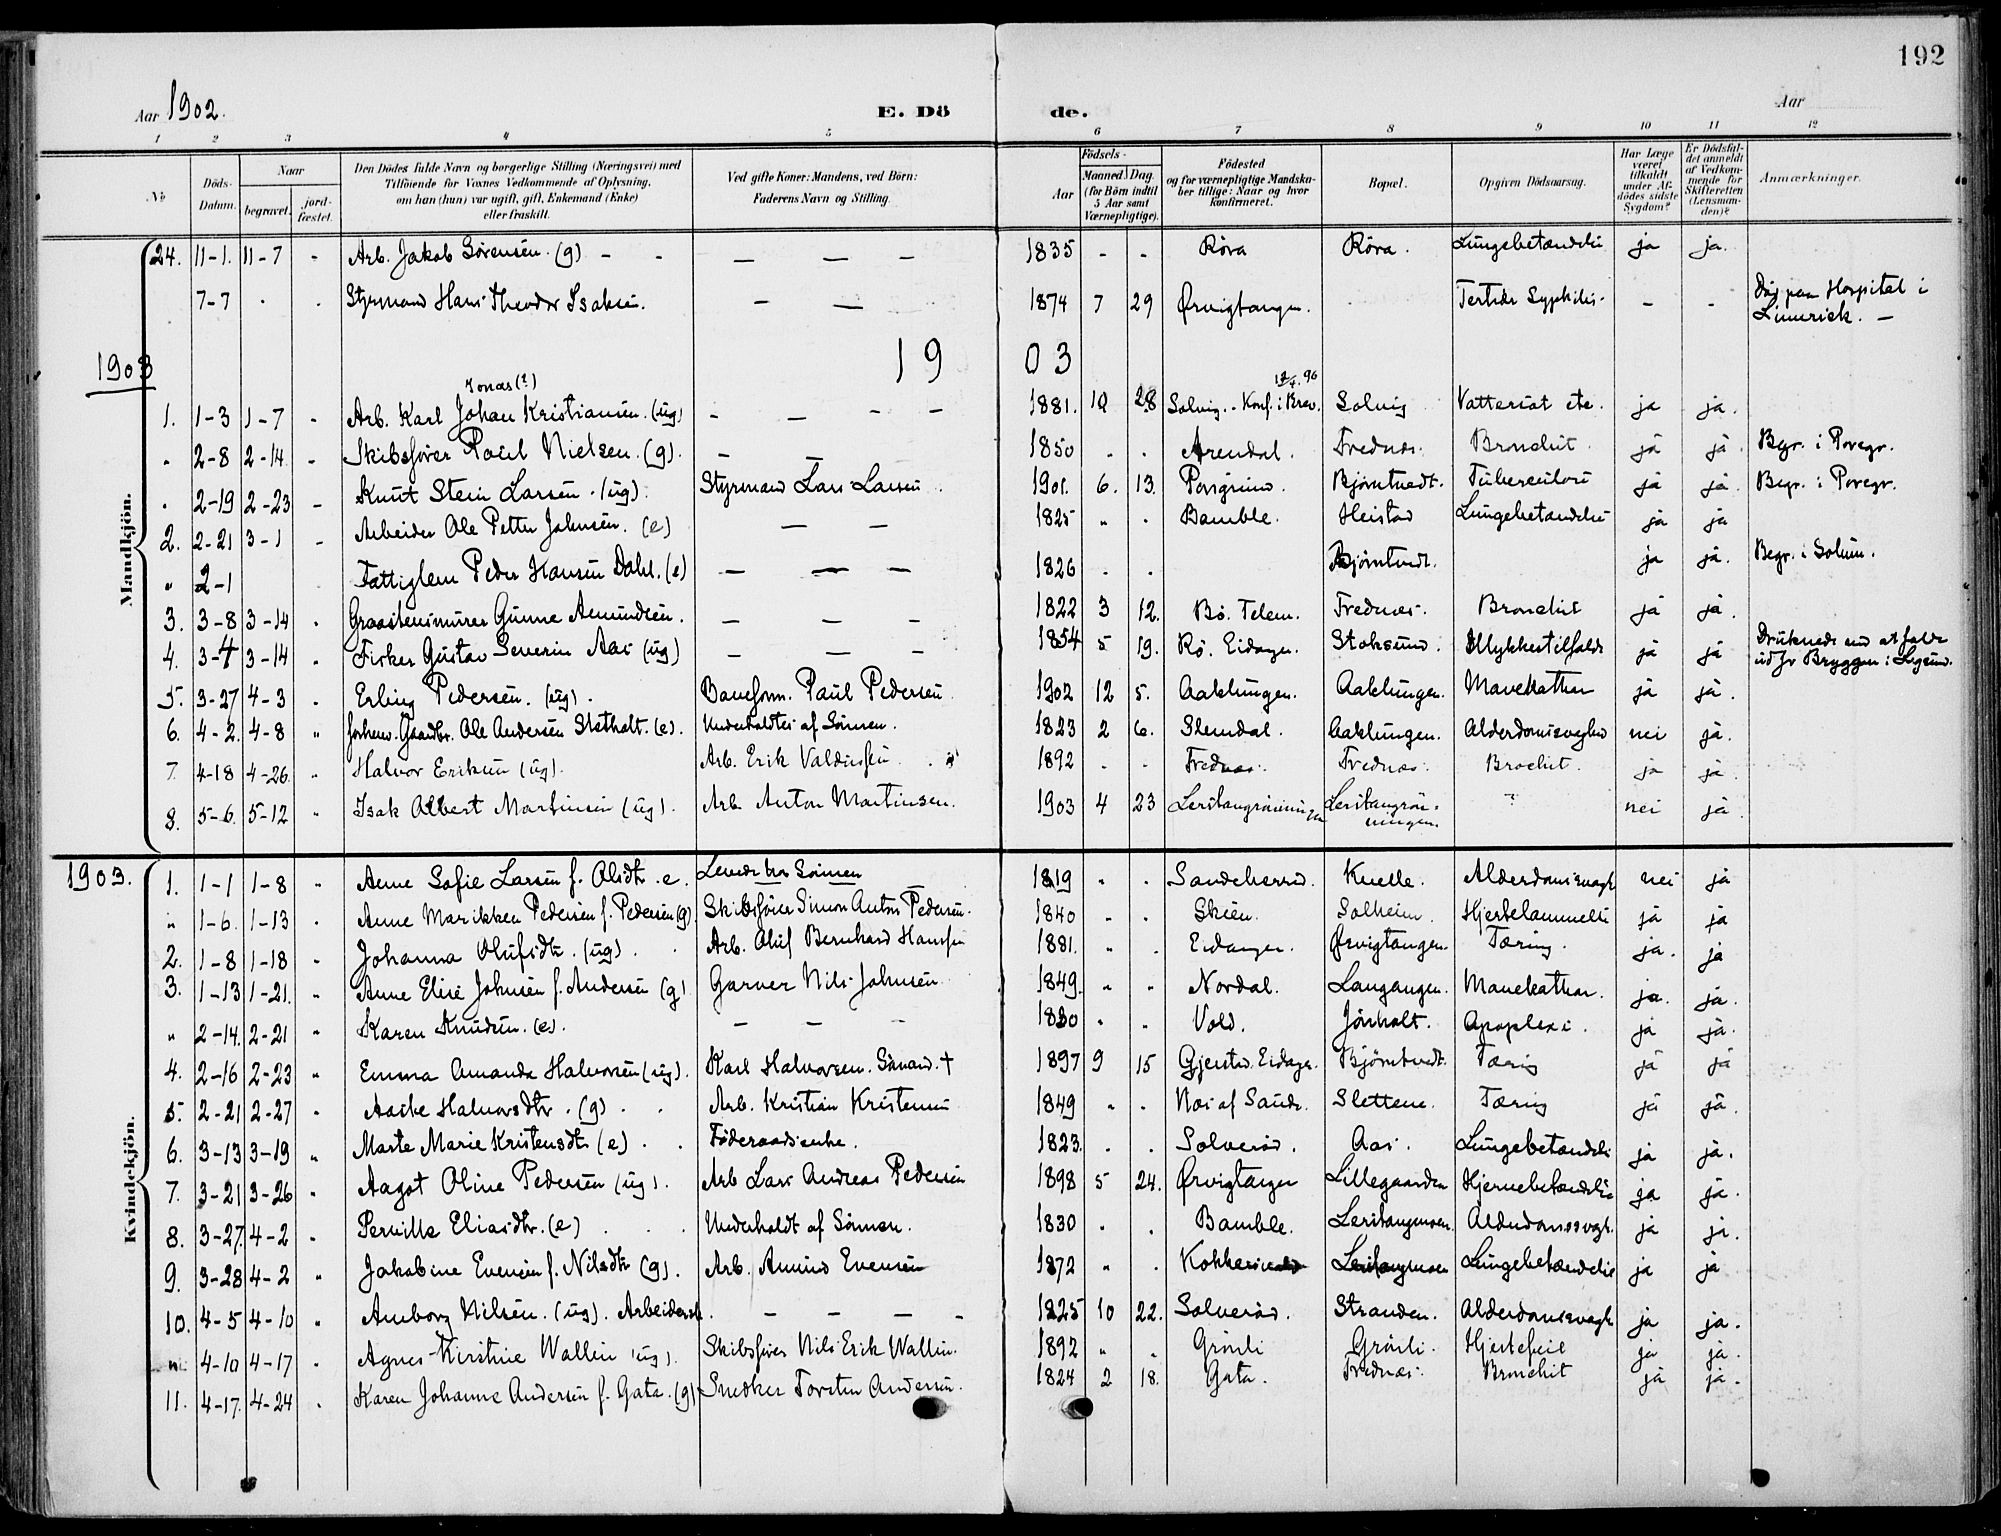 192
Aar 1902.
E. Dö de.
Aar
1 2 3 4 5 6 7 8 9 10 11 12
No
Döds-Datum.
Naar
begravet.
jord-fæstet.
Den Dödes fulde Navn og borgerlige Stilling (Næringsvei) med
Tilföiende for Voxnes Vedkommende af Oplysning,
om han (hun) var ugift, gift, Enkemand (Enke)
eller fraskilt.
Ved gifte Koner: Mandens, ved Börn:
Faderens Navn og Stilling.
Födsels-
Aar
Maaned. Dag.
(for Börn indtil
5 Aar samt
Værnepligtige).
Födested
og for værnepligtige Mandska-
ber tillige: Naar og hvor
konfirmeret.
Bopæl.
Opgiven Dödsaarsag.
Har Læge
været
tilkaldt
under Af-
dödes sidste
Sygdom?
Er Dödsfal-
det anmeldt
af Vedkom-
mende for
Skifteretten
(Lensman-
den)?
Anmærkninger.
Mandkjön.
24. 11-1. 11-7 - Arb. Jakob Sørensen. (g) - - — — — 1835 - - Röra Röra. Lungebetændelse ja ja.
7-7 Styrmand Hans Theodor Isaksen. — — 1874 7 29 Ørvigtangen. Tertiær Syphilis. - - Död paa Hospital i
Limerick. —
1903
1903
Jonas (?)
1. 1-3 1-7 - Arb. Karl Johan Kristiansen. (ug) - — - - 1881. 10 28 Solvig. - Konf. i Brev. 96 Solvig Vattersot etc. ja ja.
" 2-8 2-14 - Skibsfører Paul Nielsen. (g). - — 1850 . . Arendal. Frednæs. Bronchit. ja ja. Begr. i Porsgr.
" 2-19 2-23 - Knut Stein Larsen. (ug). Styrmand Lars Larsen 1901. 6. 13. Porsgrund. Bjørntvedt. Tuberculose ja ja. Begr. i Porsgr.
2. 2-21 3-1 - Arbeider Ole Petter Johnsen. (e) — — 1825 " . Bamble. Heistad Lungebetændelse ja ja
" 2-1 Fattiglem Peder Hansen Dahl. (e) — — — 1826 . . Bjørntvedt. ja ja. Begr. i Solum.
3. 3-8 3-14 " Graastensmurer Gunne Amundsen. — — — 1822 3 12. Bö. Telem. Frednæs. Bronchit ja ja.
4. 3-4 3-14 " Fisker Gustav Severin Aas (ug) — — — 1854 5 19. Rö. Eidanger. Stoksund. Ulykkestilfælde ja ja Druknede ved at falde
ud fr Bryggen i Lgsund.
5. 3-27 4-3 . Erling Pedersen. (ug). Baneform. Paul Pedersen 1902 12 5. Aaklungen. Aaklungen. Mavekathar ja ja.
6. 4-2. 4-8 " forhenv. Gaardbr. Ole Andersen Stetholt. (e). Underholdtes af Sønnen. 1823 2 6. Slemdal. Aaklungen. Alderdomssvaghed nei ja.
7. 4-18 4-26. " Halvor Eriksen (ug). Arb. Erik Valdersen 1892 . . Frednæs. Frednæs. Brochit. ja ja.
8. 5-6. 5-12 " Isak Albert Martinsen (ug). Arb. Anton Martinsen. 1903 4 23 Lerstangrönningen Lerstangrön-
ningen. ? nei ja
1903.
Kvindekjön.
1. 1-1 1-8 " Anne Sofie Larsen f. Olsdtr. e. Levede hos Sønnen 1819 " . Sandeherred. Knelle. Alderdomssvagh nei ja
" 1-6. 1-13 . Anne Marikken Pedersen f. Pedersen (g) Skibsfører Simon Anton Pedersen. 1840 . . Skien. Solheim. Hjertelammelse ja ja
2. 1-8 1-18 " Johanna Olufsdtr. (ug). Arb. Oluf Bernhard Hansen 1881. " . Eidanger. Ørvigtangen. Tæring. ja. ja
3. 1-13 1-21. " Anne Elise Johnsen f. Andersen (g) Garver Nils Johnsen 1849. " . Nordal. Langangen. Mavekathar. ja. ja.
" 2-14. 2-21 " Karen Knudsen. (e). — — - 1830 " . Vold. Jönholt. Apoplexi. ja ja.
4. 2-16 2-23 " Emma Amanda Halvorsen (ug). Karl Halvorsen. Sömand. † 1897 9 15 Gjerstad. Eidanger. Bjørntvedt. Tæring ja ja
5. 2-21 2-27 " Aaste Halvorsdtr. (g). Arb. Kristian Kristensen 1849 " . Næs af Saude. Slettene. Tæring ja ja.
6. 3-13 3-19 " Marte Marie Kristensdtr. (e) . Föderaadsenke. 1823. . . Solverød. Aas. Lungebetændelse ja ja.
7. 3-21 3-26 " Aagot Oline Pedersen (ug). Arb Lars Andreas Pedersen 1898 5 24. Ørvigtangen Lillegaarden Hjernebetændelse ja ja.
8. 3-27. 4-2 " Pernille Eliasdtr. (e) Underholdt af Sönnen. 1830 . . Bamble. Lerstangmoen. Alderdomssvagh. ja ja.
9. 3-28 4-2 " Jakobine Evensen f. Nilsdtr (g). Arb. Amund Evensen 1872 " . Lerstangmoen Lungebetændelse ja ja
10. 4-5 4-10 " Amborg Nilsen. (ug). Arbeidersk. - — - - 1825 10 22. Solverød. Stranden. Alderdomssvagh ja ja.
". 4-10 4-17 " Agnes Kirstine Wallin (ug). Skibsfører Nils Erik Wallin. 1892 " . Grönli Grönli. Hjertefeil ja ja.
11. 4-17. 4-24 . Karen Johanne Andersen f. Gata. (g) Snedker Torsten Andersen. 1824 2 18. Gata. Frednæs. Bronchit ja ja.